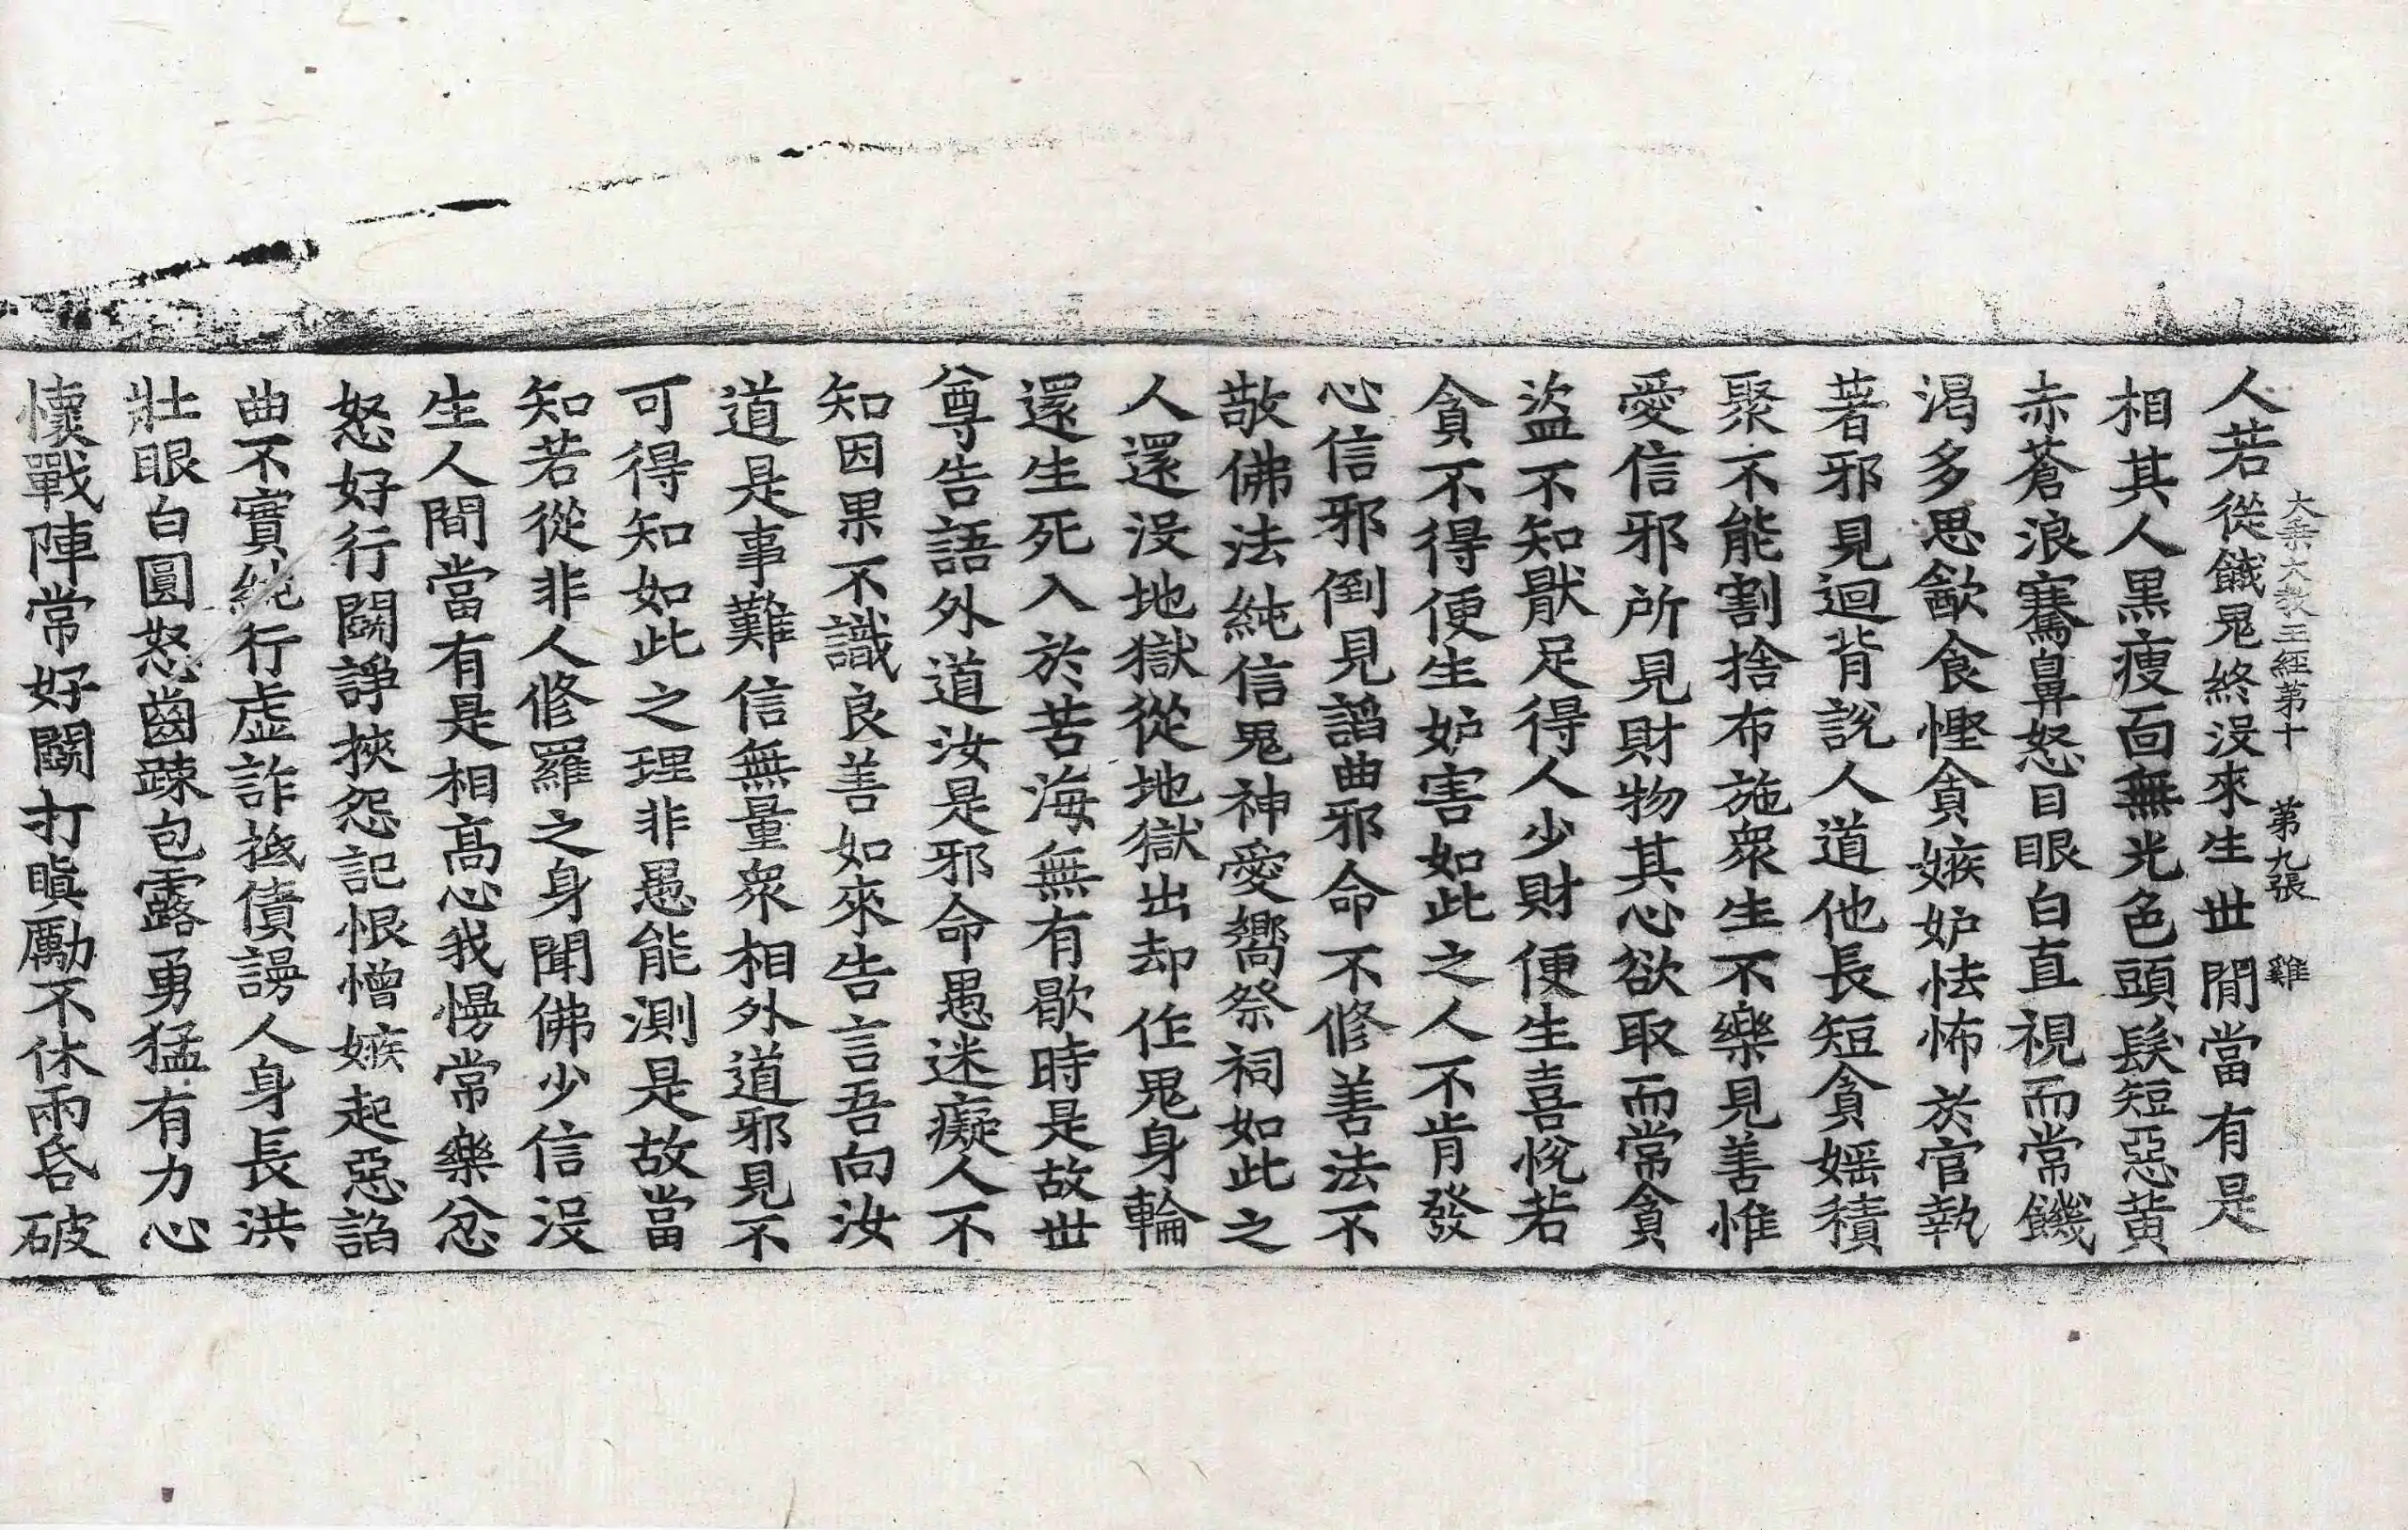 大乘大敎王經第十 第九張 雞
人若從餓鬼終沒來生世閒當有是
相其人黒瘦面無光色頭髮短惡黃
赤蒼浪騫鼻怒目眼白直視而常饑
渴多思歠食慳貪嫉妒怯怖於官執
著邪見迴背說人道他長短貪婬積
聚不能割捨布施衆生不樂見善惟
愛信邪所見財物其心欲取而常貪
盜不知猒足得人少財便生喜悅若
貪不得便生妒害如此之人不肯發
心信邪倒見諂曲邪命不修善法不
敬佛法純信鬼神愛嚮祭祠如此之
人還沒地獄從地獄出却作鬼身輪
還生死入於苦海無有歇時是故世
尊告語外道汝是邪命愚迷癡人不
知因果不識良善如來告言吾向汝
道是事難信無量衆相外道邪見不
可得知如此之理非愚能測是故當
知若從非人修羅之身聞佛少信沒
生人間當有是相高心我慢常樂忿
怒好行鬪諍挾怨記恨憎嫉起惡諂
曲不實純行虛詐抵債謗人身長洪
壯眼白圓怒齒踈包露勇猛有力心
懷戰陣常好鬪打瞋勵不休兩舌破